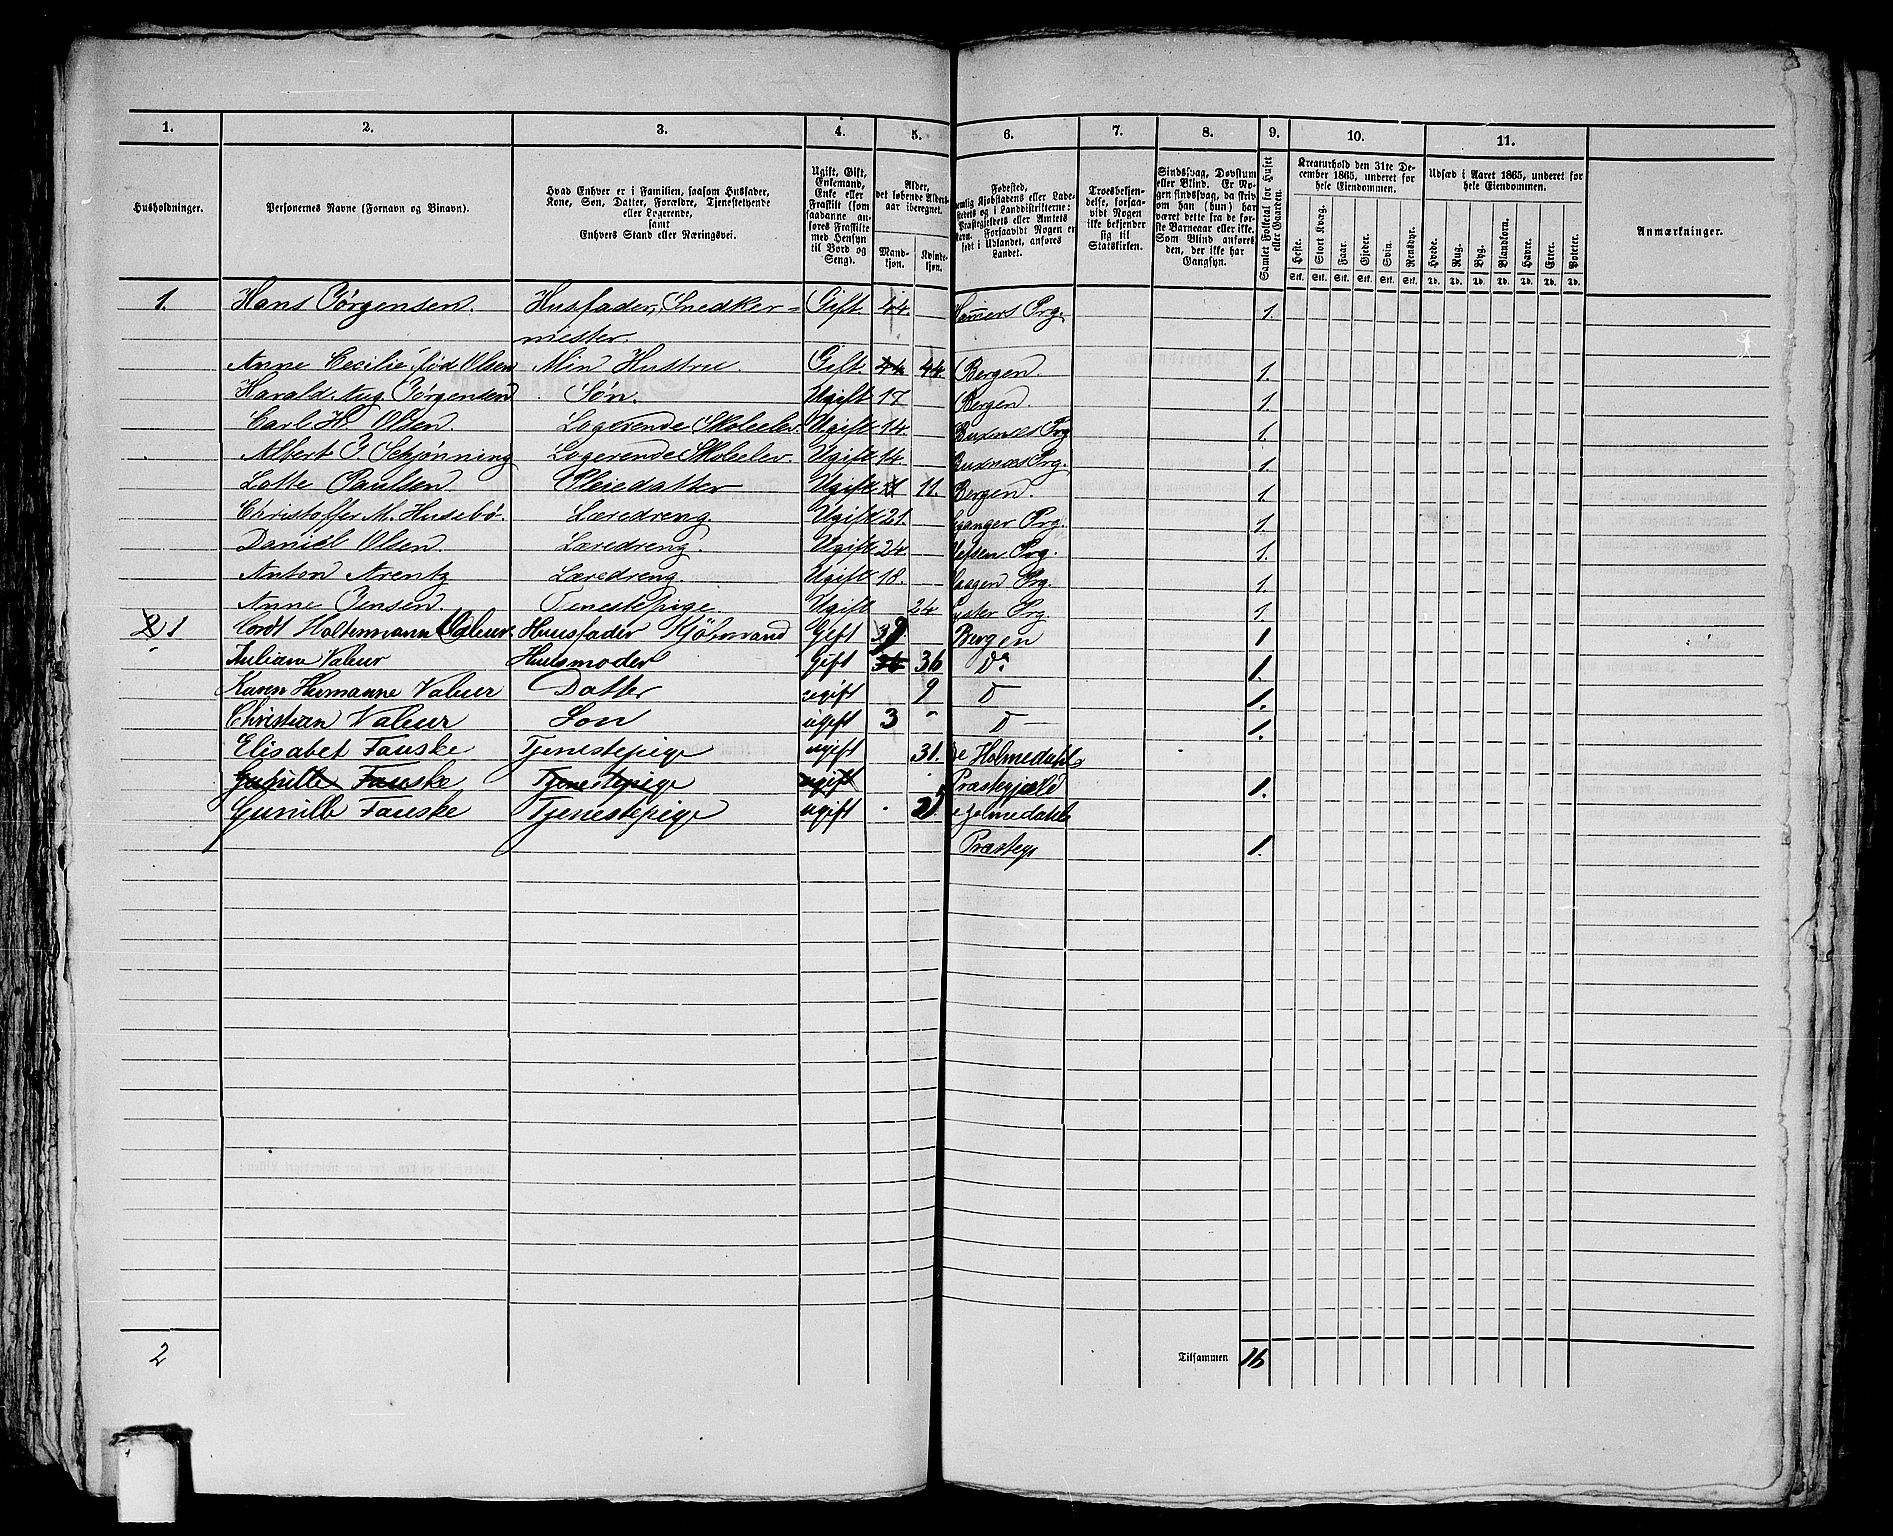 1. 2. 3. 4. 5. 6. 7. 8. 9. 10. 11.
Husholdninger.
Personernes Navne (Fornavn og Binavn).
Hvad Enhver er i Familien, saasom Husfader,
Kone, Søn, Datter, Forældre, Tjenestetyende
eller Logerende,
samt
Enhvers Stand eller Næringsvei.
Ugift, Gift,
Enkemand,
Enke eller
Fraskilt (som
saadanne an-
føres Fraskilte
med Hensyn
til Bord og
Seng).
Alder,
det løbende Alders-
aar iberegnet.
Mand-
kjøn.
Kvinde-
kjøn.
Fødested,
Forsaavidt Nogen er
født i Udlandet, anføres
Landet.
Troesbekjen-
delse, forsaa-
vidt Nogen
ikke bekjender
sig til
Statskirken.
Sindssvag, Døvstum
eller Blind. Er No-
gen sindssvag, da skriv
om han (hun) har
været dette fra de før-
ste Barneaar eller ikke.
Som Blind anføres
den, der ikke har
Gangsyn.
Samlet Folketal for Huset
eller Gaarden.
Kreaturhold den 31te De-
cember 1865, underet for
hele Eiendommen.
Heste. Stort Kvæg. Faar. Gjeder. Svin. Rensdyr.
Stk. Stk. Stk. Stk. Stk. Stk.
Udsæd i Aaret 1865, underet for
hele Eiendommen.
Hvede. Rug. Byg. Blandkorn. Havre. Erter. Poteter.
Td. Td. Td. Td. Td. Td. Td.
Anmærkninger.
1. Hans Jørgensen. Husfader, Snedker= Gift. 44. Hammers Prg. 1.
mester.
Anne Cecilie fød Olsen Min Hustru Gift. 44 44. Bergen. 1.
Harald Aug. Jørgensen Søn. Ugift 17 Bergen. 1.
Carl H. Olsen. Logerende Skoleelev. Ugift 14. Buxnæs Prg 1.
Albert J Schjønning Logerende Skoleelev. Ugift 14. Buxnæs Prg. 1.
Lotte Paulsen. Pleiedatter Ugift 11. Bergen. 1.
Christoffer M. Husebø. Læredreng. Ugift 21. ganger Prg. 1.
Daniel Olsen. Læredreng. Ugift 24. Vefsen Prg. 1.
Anton Arentz Læredreng. Ugift 18. Prg. 1.
Anne Jensen. Tenestepige Ugift 24 Prg. 1.
2 1 Cordt Holtermann Valeur. Huusfader Kjøbmand Gift 39 Bergen 1
Juliane Valeur Huusmoder Gift 36 36 Do 1.
Karen Hermanne Valeur Datter ugift 9 D 1.
Christian Valeur Søn ugift 3 - D 1.
Elisabet Fauske Tjenestepige ugift 31. Holmedahls
Gunille Fauske Tjenestepige ugift Præstegjæld 1.
Gunille Fauske Tjenestepige ugift 25 jelmedahls
Præstegj 1.
2 Tilsammen 16